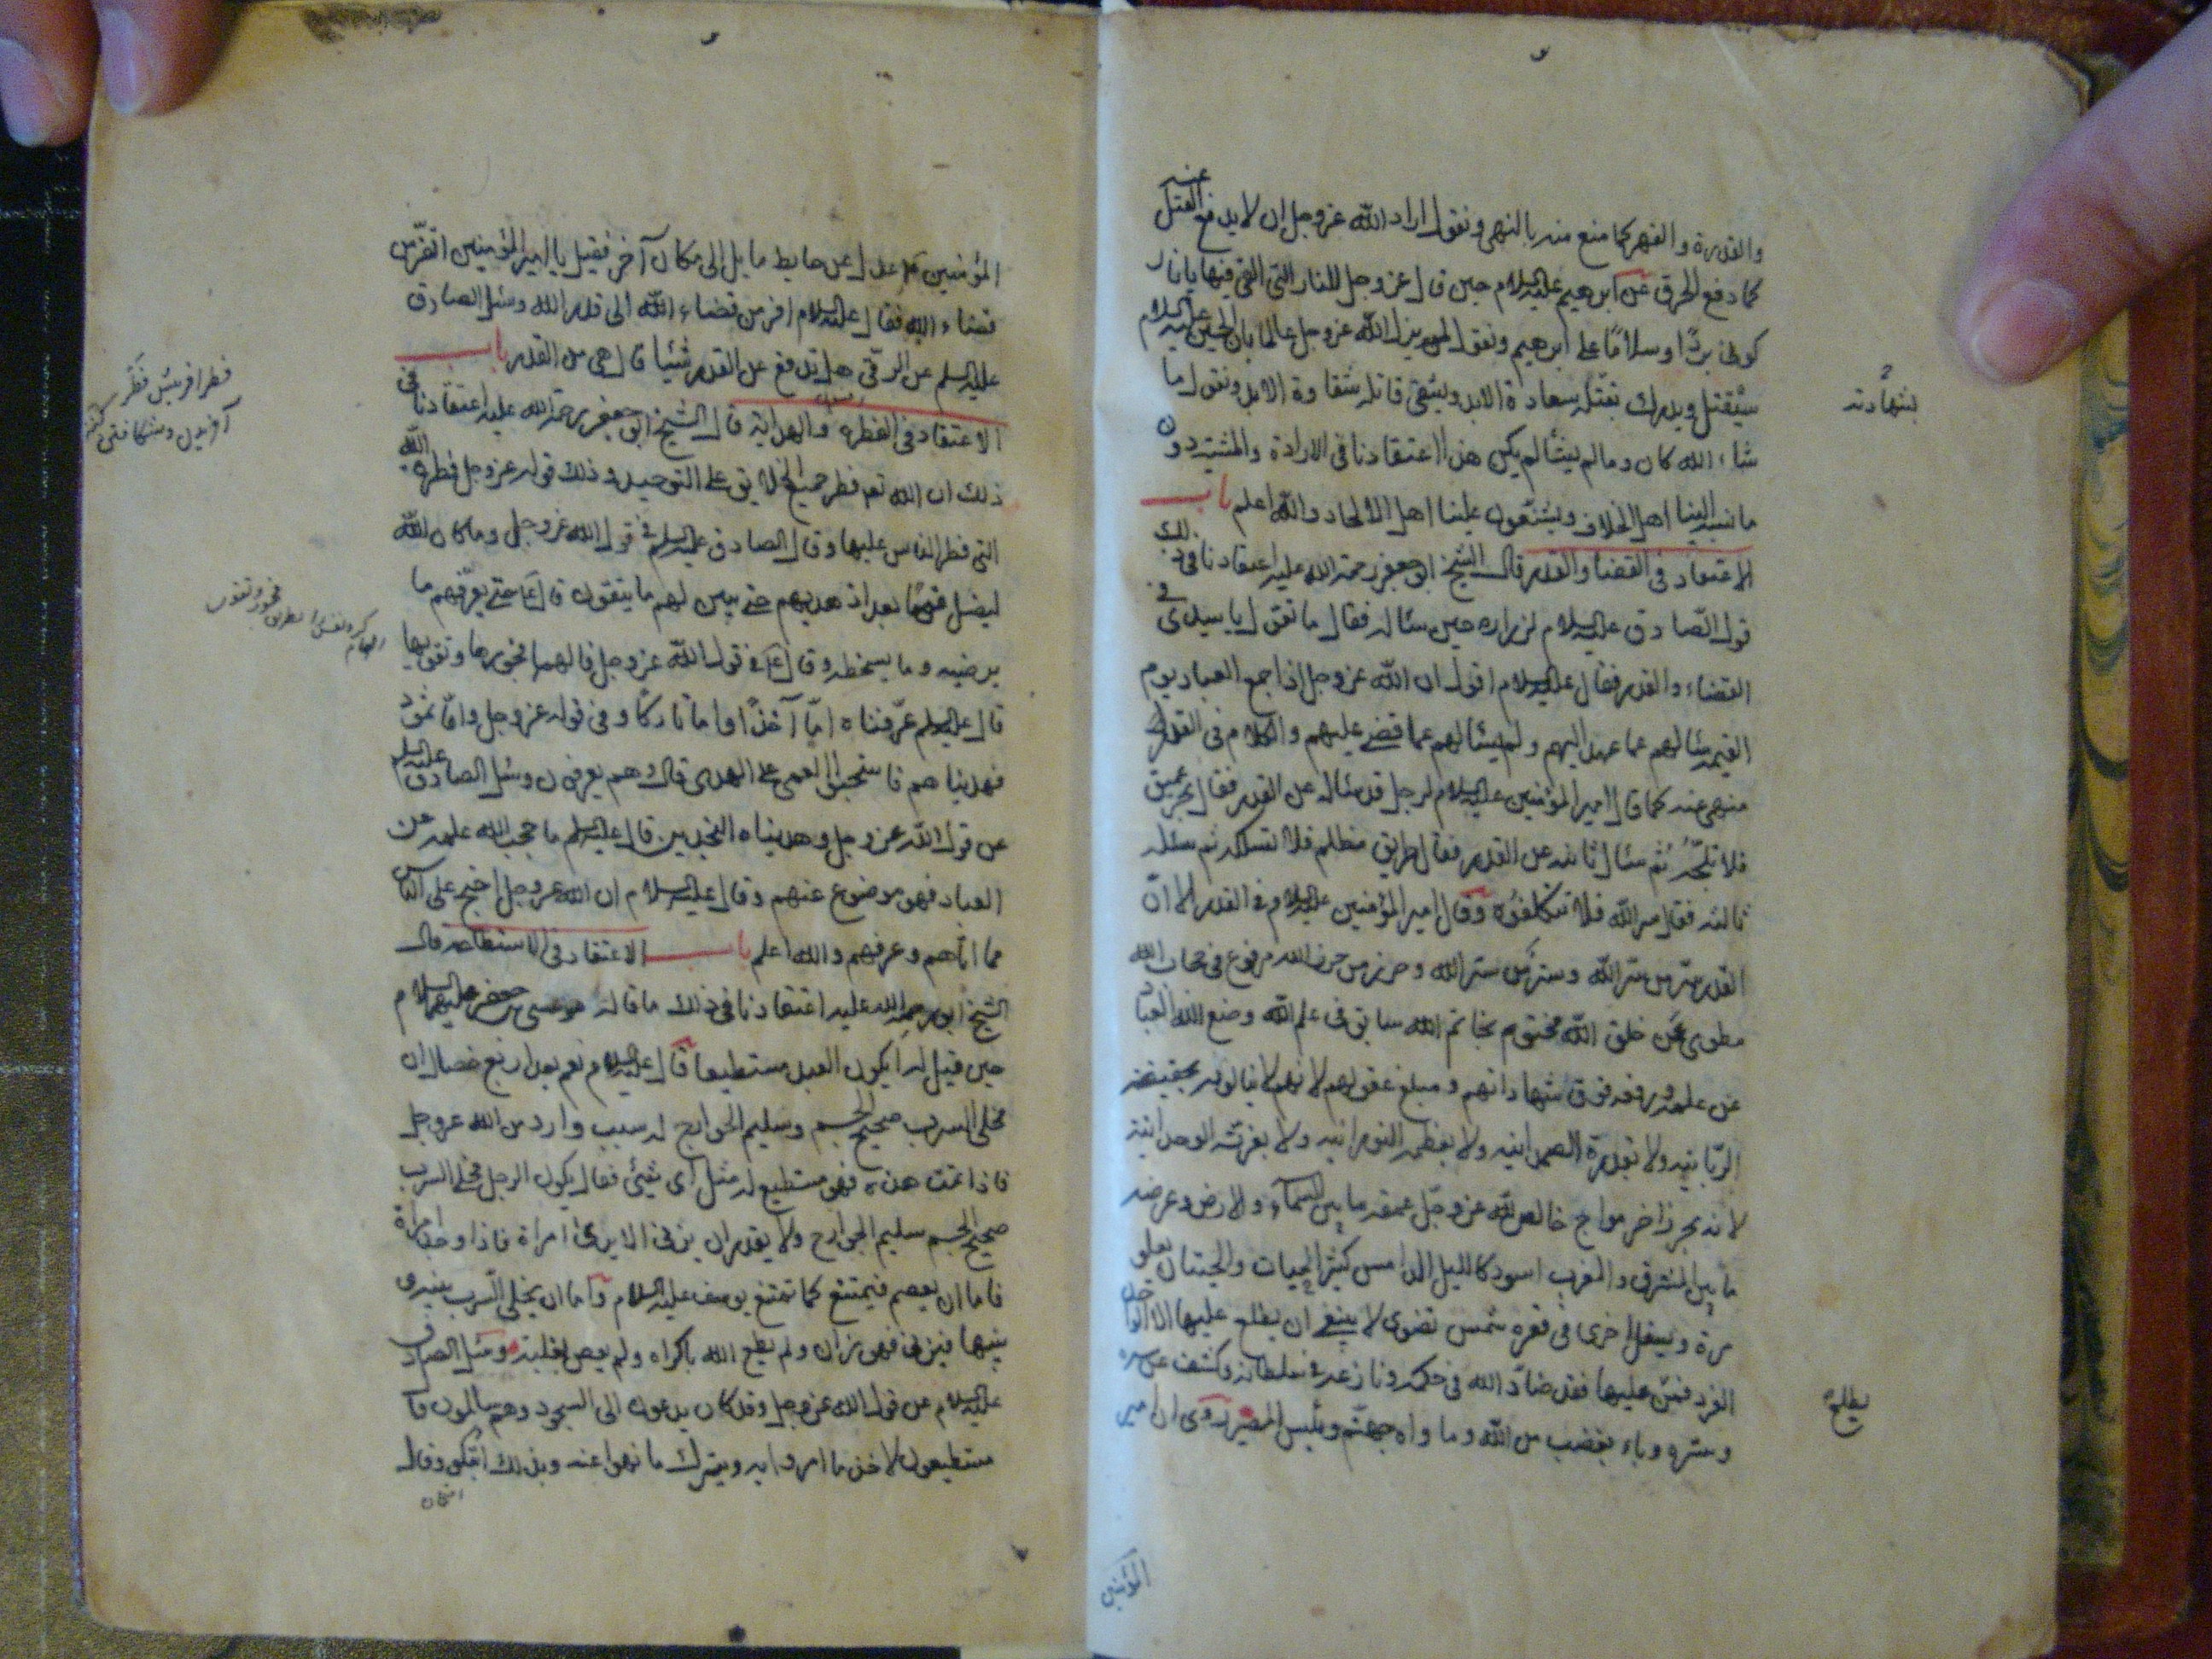 والقدرة والقهر كما منع منه بالنهى ونقول اراد الله عزوجل ان لا يدفع القتل عنه
كما دفع الحرق عن ابرهيم عليه السلام حين قال عزوجل للنار التى القى فيها يا نار
كونى بردًا وسلامًا على ابرهيم ونقول لم يزل الله عزوجل عالما بان الحسين عليه السلام
سيُقتل ويدرك بقتله سعادة الابد ويشقى قاتله شقاوة الابد ونقول ما
شاء الله كان وما لم يشأ لم يكن هذا اعتقادنا فى الارادة والمشية دون
ما نسب الينا اهل الخلاف ويشنّعون علينا اهل الالحاد والله اعلم باب
الاعتقاد فى القضا والقدر قال الشيخ ابو جعفر رحمة الله عليه اعتقادنا فى ذلك
قول الصادق عليه السلام لزراره حين سئاله فقال ما تقول يا سيدى فى
القضاء والقدر فقال عليه السلام اقول ان الله عزوجل اذا جمع العباد يوم
القيمه سئالهم عما عهد اليهم ولم يسئالهم عما قضى عليهم والكلام فى القدر
منهى عنه كما قال امير المؤمنين عليه السلام لرجل قد سئاله عن القدر فقال بحر عميق
فلا تلجّهُ ثم سئال ثانيه عن القدر فقال طريق مظلم فلا تسلكه ثم سئله
ثالثه فقال سر الله فلا تتكلفُوه وقال امير المؤمنين عليه السلام فى القدر الا انّ
القدر سرّ من سرّ الله وستر من ستر الله وحرز من حرز الله مرفوع فى حجاب الله
مطوى عن خلق الله مختوم بخاتم الله سابق فى علم الله وضع الله العباد
عن علمه ورفعه فوق شهاداتهم ومبلغ عقولهم لانهم لا ينالونه بحقيقة
الربّانيه ولا بقدرة الصمدانيه ولا بعظمة النورانيه ولا بعزّة الوحدانية
لانه بحر زاخر مواج خالص لله عز وجلّ عمقه ما بين السمآء والارض وعرضه
ما بين المشرق والمغرب اسود كالليل الدامس كثير الحيات والحيتان يعلو
مرة ويسفل اخرى فى قعره شمس تضوى لا ينبغى ان يطلع عليها الا الواحد
الفرد فمن عليها فقد ضادّ الله فى حكمه ونازعه فى سلطانه وكشف عن سره
وستره وباء بغضب من الله وماواه جهنّم وبئس المصير روى ان امير
بشهادته
يطلع
المؤمنين
المؤمنين عدل عن حايط مايل الى مكان آخر فقيل يا امير المؤمنين اتفرّ من
قضاء الله فقال عليه السلام افر من قضاء الله الى قدر الله وسئل الصادق
عليه السلم عن الرقى هل تدفع عن القدر شيئا قال هى من القدر باب
الاعتقاد فى الفطره والهداية قال الشيخ ابو جعفر رحمة الله عليه اعتقادنا فى
ذلك ان الله تعم فطر جميع الخلايق على التوحيد وذلك قوله عز وجل فطره الله
التى فطر الناس عليها وقال الصادق عليه السلم فى قول الله عزوجل وما كان الله
ليضل قومًا بعد اذ هديهم حتى يبين لهم ما يتقون قال ع حتى يعرّفهم ما
يرضيه وما يسخطه وقال ع فى قول الله عز وجل فالهمها فجورها وتقويها
قال عليه السلم عرّفناه امّا آخذًا واما تاركًا وفى قوله عزوجل وامّا ثمود
فهديناهم فاستحبوا العمى على الهدى قال وهم يعرفون وسئل الصادق عليه السلم
عن قول الله عز وجل وهديناه النجدين قال عليه السلم ما حجب الله علمه عن
العباد فهو موضوع عنهم وقال عليه السلام ان الله عزوجل احتج على الناس
مما اتاهم وعرفهم والله اعلم باب الاعتقاد فى الاستطاعه قال
الشيخ ابو رحمة الله عليه اعتقادنا فى ذلك ما قاله موسى بن جعفر عليهما السلام
حين قيل له أيكون العبد مستطيعا قال عليه السلام نعم بعد اربع خصال ان
مخلى السرب صحيح الجسم وسليم الجوارح له سبب وارد من الله عز وجل
فاذا تمت هذه فهو مستطيع له مثل اى شيئ فقال يكون الرجل مخلى السرب
صحيح الجسم سليم الجوارح ولا يقدر ان يزنى الا ان يرى امراة فاذا وجد امراة
فاما ان يعصم فيمتنع كما تمتنع يوسف عليه السلام واما ان يخلى السرب بينه
بينها فيزنى فهو زان ولم يطع الله باكراه ولم يعص بغلبة وسئل الصادق
عليه السلام عن قول الله عزوجل وقد كان يدعون الى السجود وهم سالمون قا
مستطيعون لاخذ ما امروا به ويترك ما نهوا عنه وبذلك ابتلوا وقال
فطر افرينش فَطَر
آفريدن وشكافتن